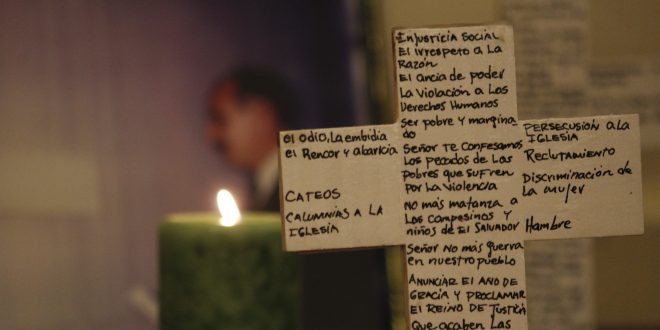 INJUSTICIA SOCIAL
El IRRespeto a La
Razón
El ancia de poder
La Violación a Los
Derechos Humanos
Ser pobre y margina
do
Señor Te Confesamos
Los pecados de Los
pobres que sufren
por la Violencia
No más matanza a
Los campesinos y
niños de El Salvador
Señor No más guerra
en nuestro pueblo
Anunciar El Año de
Gracia y proclamar
El Reino de Justicia
Que acaben Las
el odio, La embidia
el Rencor y abaricia
CATEOS
CALUMNIAS A LA
IGLESIA
PERSECUSIÓN A LA
IGLESIA
Reclutamiento
Discriminación de
La mujer
Hambre